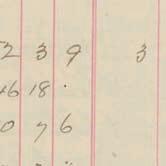 2 3 9 3
46 18
0 7 6